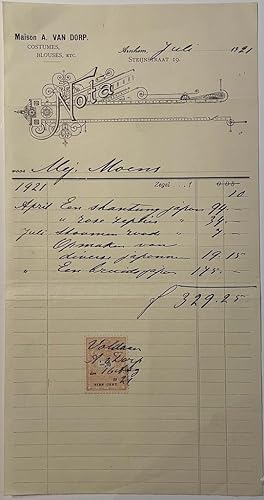 Maison A. VAN DORP.
COSTUMES,
BLOUSES, ETC.
Arnhem, Juli 1921
STEIJNSTRAAT 19.
Nota
voor Mej. Moens
1921 Zegel . . f 0.05
10
April Een shantung japon 94.–
" rose zephir " 34.–
Juli Stoomen rood " 7.–
Opmaken van
diverse japonnen 19.15
" Een bruidsjapon 175.–
f 329.25
Voldaan
A. v. Dorp
21